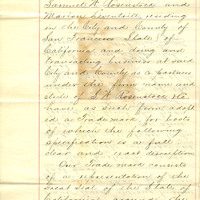 Samuel H.
Marcus residing
in the City and County of
San Francisco State of
California and doing and
transacting business at said
City and County as Partners
under the firm name and
style of S. H. & Co
have as such firm adopt
ed a Trade mark for boots
of which the following
specification is a full
clear and exact description
Our Trade mark consists
of a representation of the
Great Seal of the State of
California around the